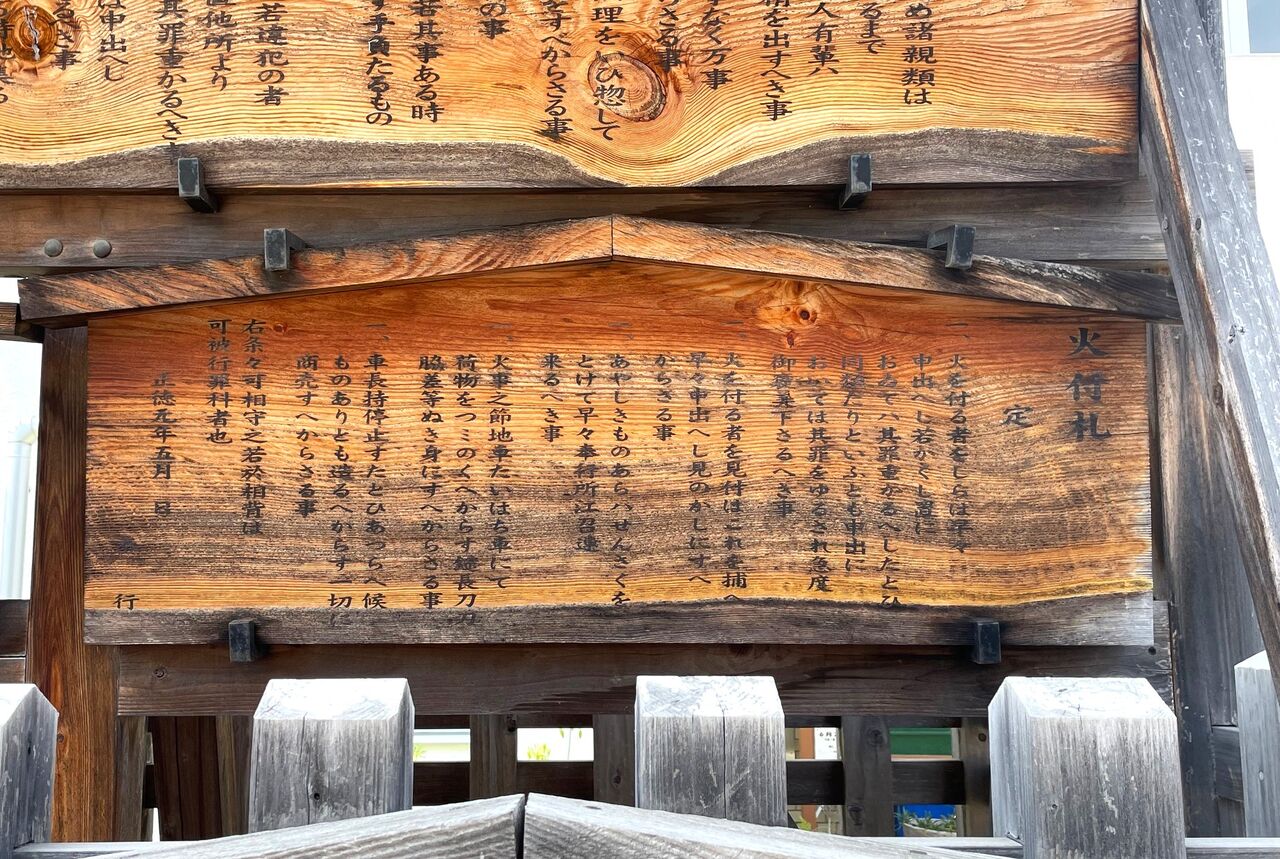 め諸親類は
るまて
人有輩六
精を出すへき事
なく万事
らさる事
理をいひ惣して
をすへからさる事
の事
若其事ある時
す手負たるもの
若違犯の者
他所より
其罪重かるへき事
は申出へし
るさき事
火付札
定
一、火を付る者をしらは早々
申出へし若かくし置に
おゐてハ其罪重かるへしたとひ
同類たりといふとも申出に
おいては其罪をゆるされ急度
御褒美下さるへき事
一、火を付る者を見付はこれを捕へ
早々申出へし見のかしにすへ
からさる事
一、あやしきものあらハせんさくを
とけて早々奉行所江召連
来るへき事
一、火事之節地車たいはち車にて
荷物をつミのくへからす鑓長刀刀
脇差等ぬき身にすへからさる事
一、車長持停止すたとひあつらへ候
ものありとも造るへからす一切に
商売すへからさる事
右条々可相守之若於相背は
可被行罪科者也
正徳元年五月 日
奉行